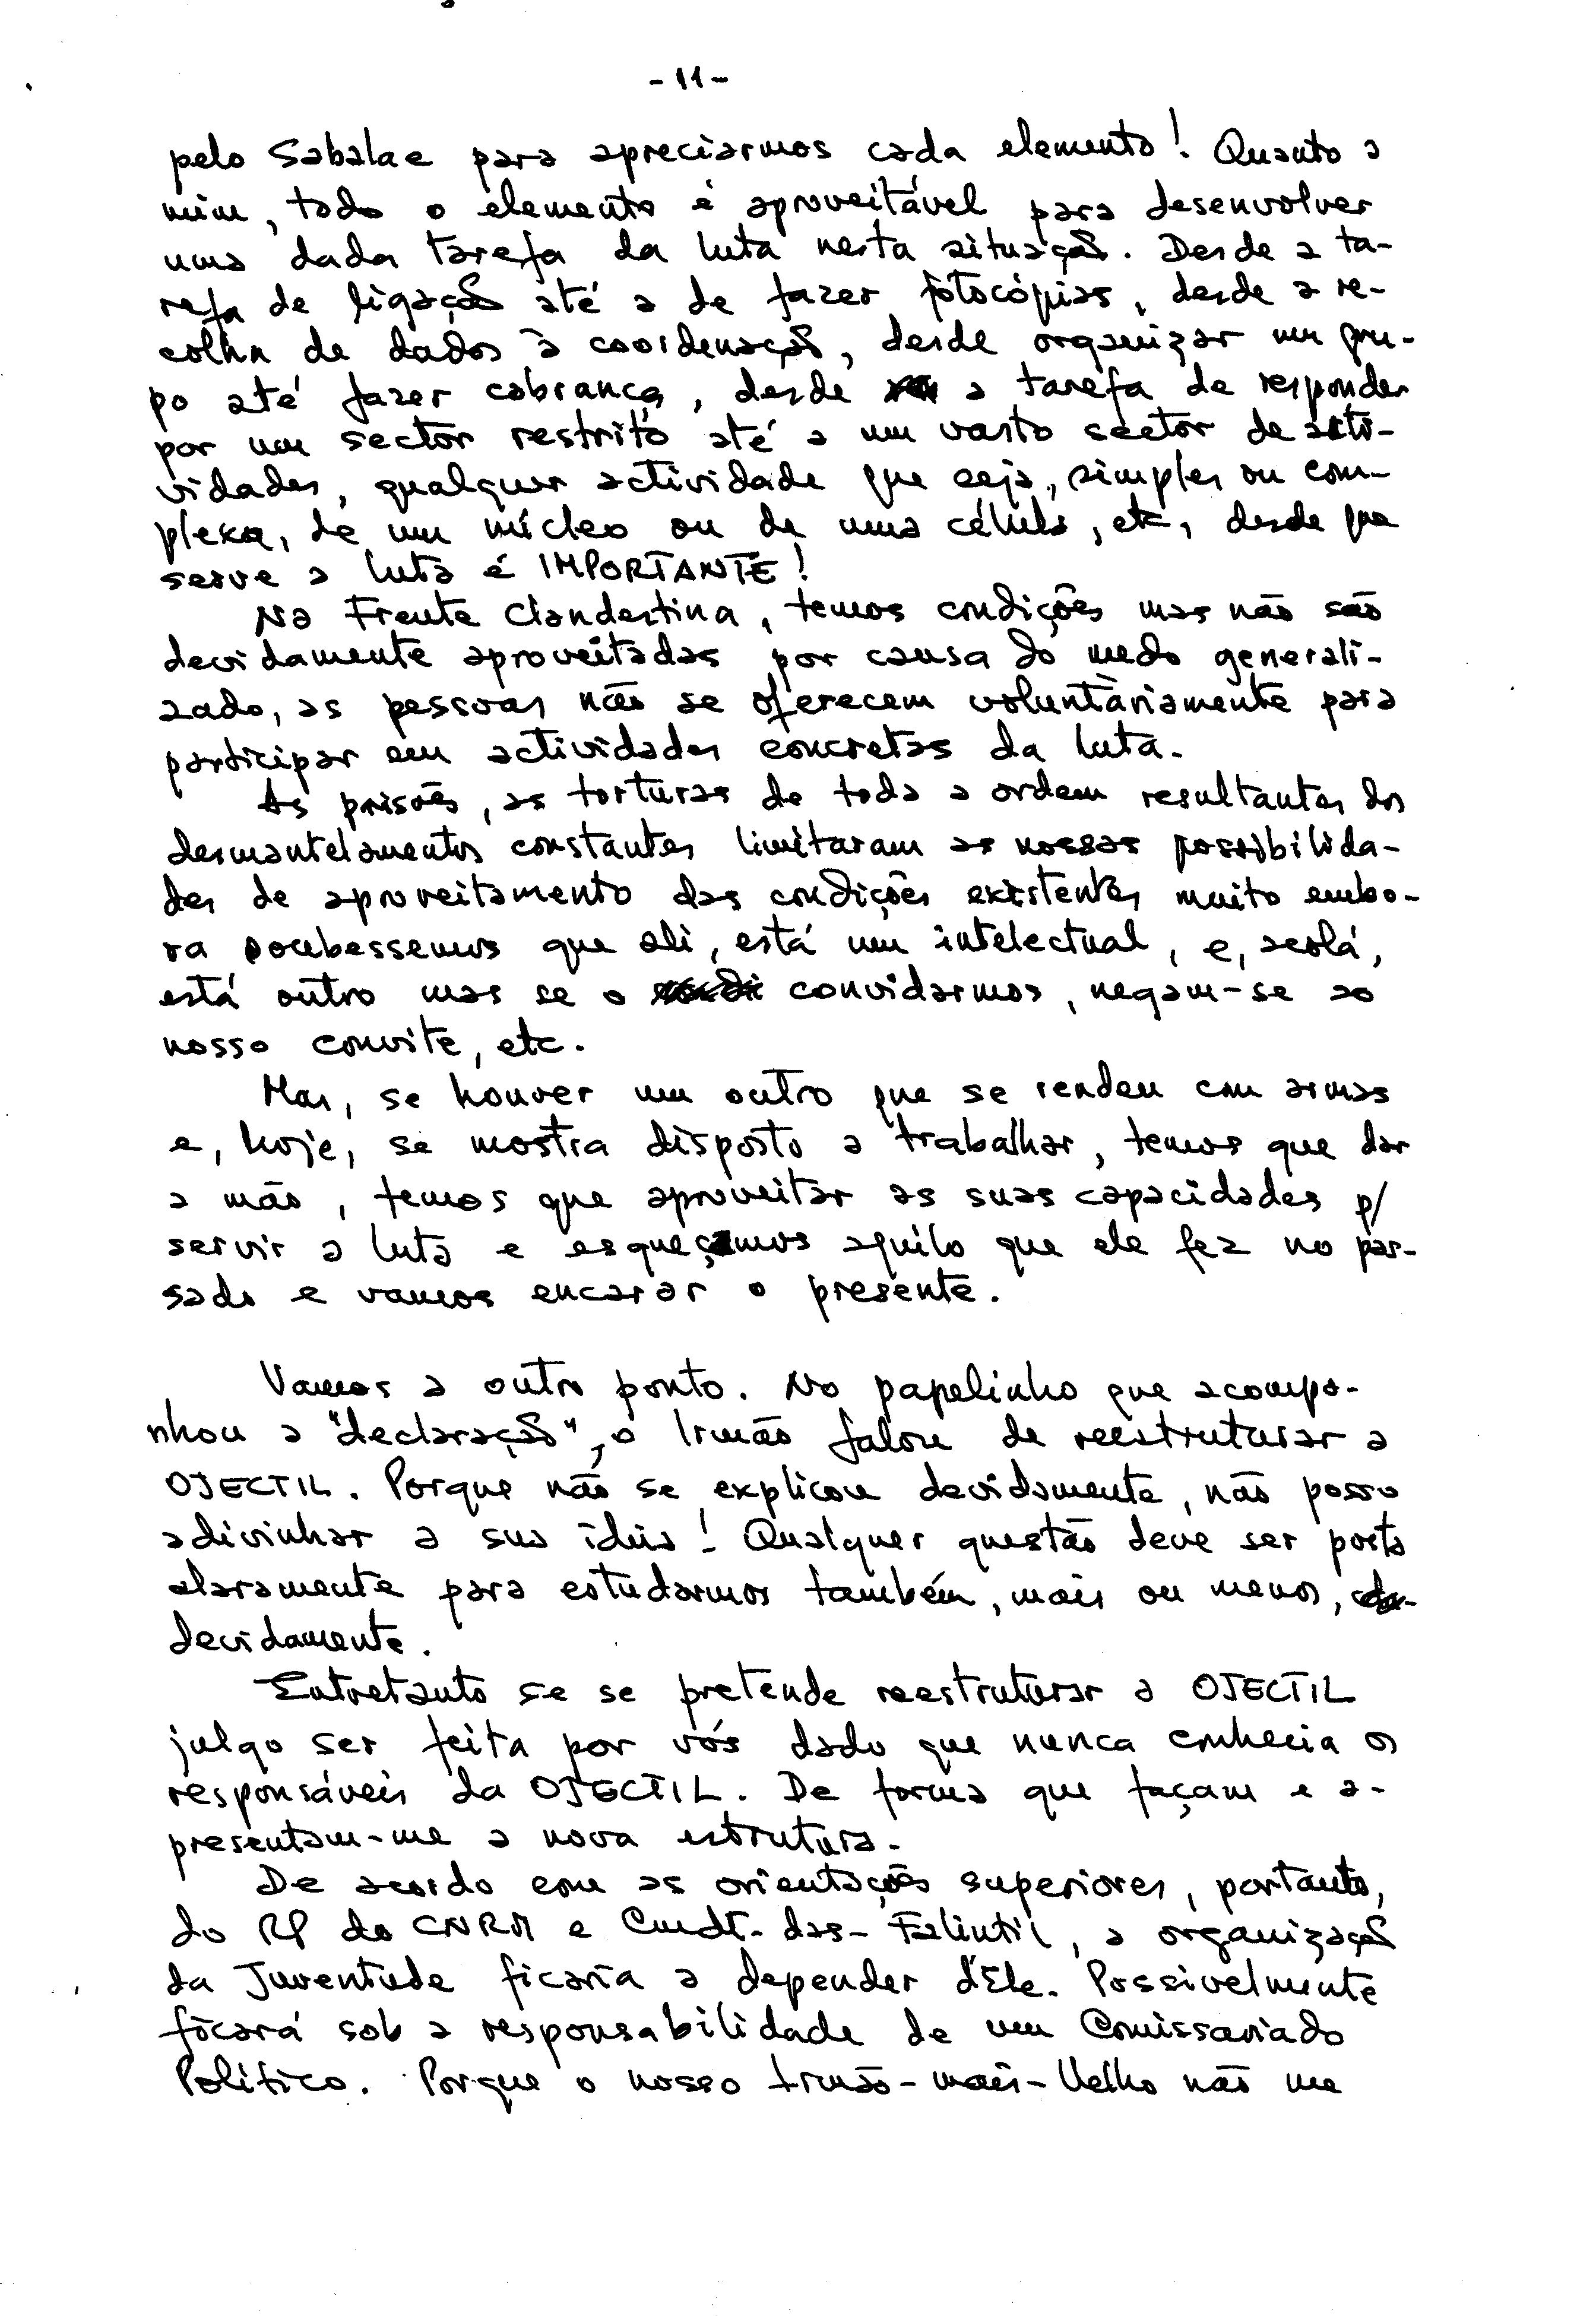 - 11 -
pelo Sabalae para apreciarmos cada elemento! Quanto a
mim, todo o elemento é aproveitável para desenvolver
uma dada tarefa da luta nesta situação. Desde a ta-
refa de ligação até a de fazer fotocópias, desde a re-
colha de dados à coordenação, desde organizar um gru-
po até fazer cobrança, desde a tarefa de responder
por um sector restrito até a um vasto sector de acti-
vidades, qualquer actividade que seja, simples ou com-
plexa, de um núcleo ou de uma célula, etc, desde que
serve a luta é IMPORTANTE!
Na Frente Clandestina, temos condições mas não são
devidamente aproveitadas por causa do medo generali-
zado, as pessoas não se oferecem voluntàriamente para
participar em actividades concretas da luta.
As prisões, as torturas de toda a ordem resultantes dos
desmantelamentos constantes limitaram as nossas possibilida-
des de aproveitamento das condições existentes muito embo-
ra soubessemos que ali, está um intelectual, e, acolá,
está outro mas se o convidarmos, negam-se ao
nosso convite, etc.
Mas, se houver um outro que se rendeu com armas
e, hoje, se mostra disposto a trabalhar, temos que dar
a mão, temos que aproveitar as suas capacidades p/
servir a luta e esqueçamos aquilo que ele fez no pas-
sado e vamos encarar o presente.
Vamos a outro ponto. No papelinho que acompa-
nhou a "declaração", o Irmão falou de reestruturar a
OJECTIL. Porque não se explicou devidamente, não posso
adivinhar a sua ideia! Qualquer questão deve ser posta
claramente para estudarmos também, mais ou menos,
devidamente.
Entretanto se se pretende reestruturar a OJECTIL
julgo ser feita por vós dado que nunca conhecia os
responsáveis da OJECTIL. De forma que façam e a-
presentam-me a nova estrutura.
De acordo com as orientações superiores, portanto,
do RP do CNRM e Cmdt. das - Falintil, a organização
da Juventude ficaria a depender d'Ele. Possivelmente
ficará sob a responsabilidade de um Comissariado
Político. Porque o nosso Irmão-mais-Velho não me